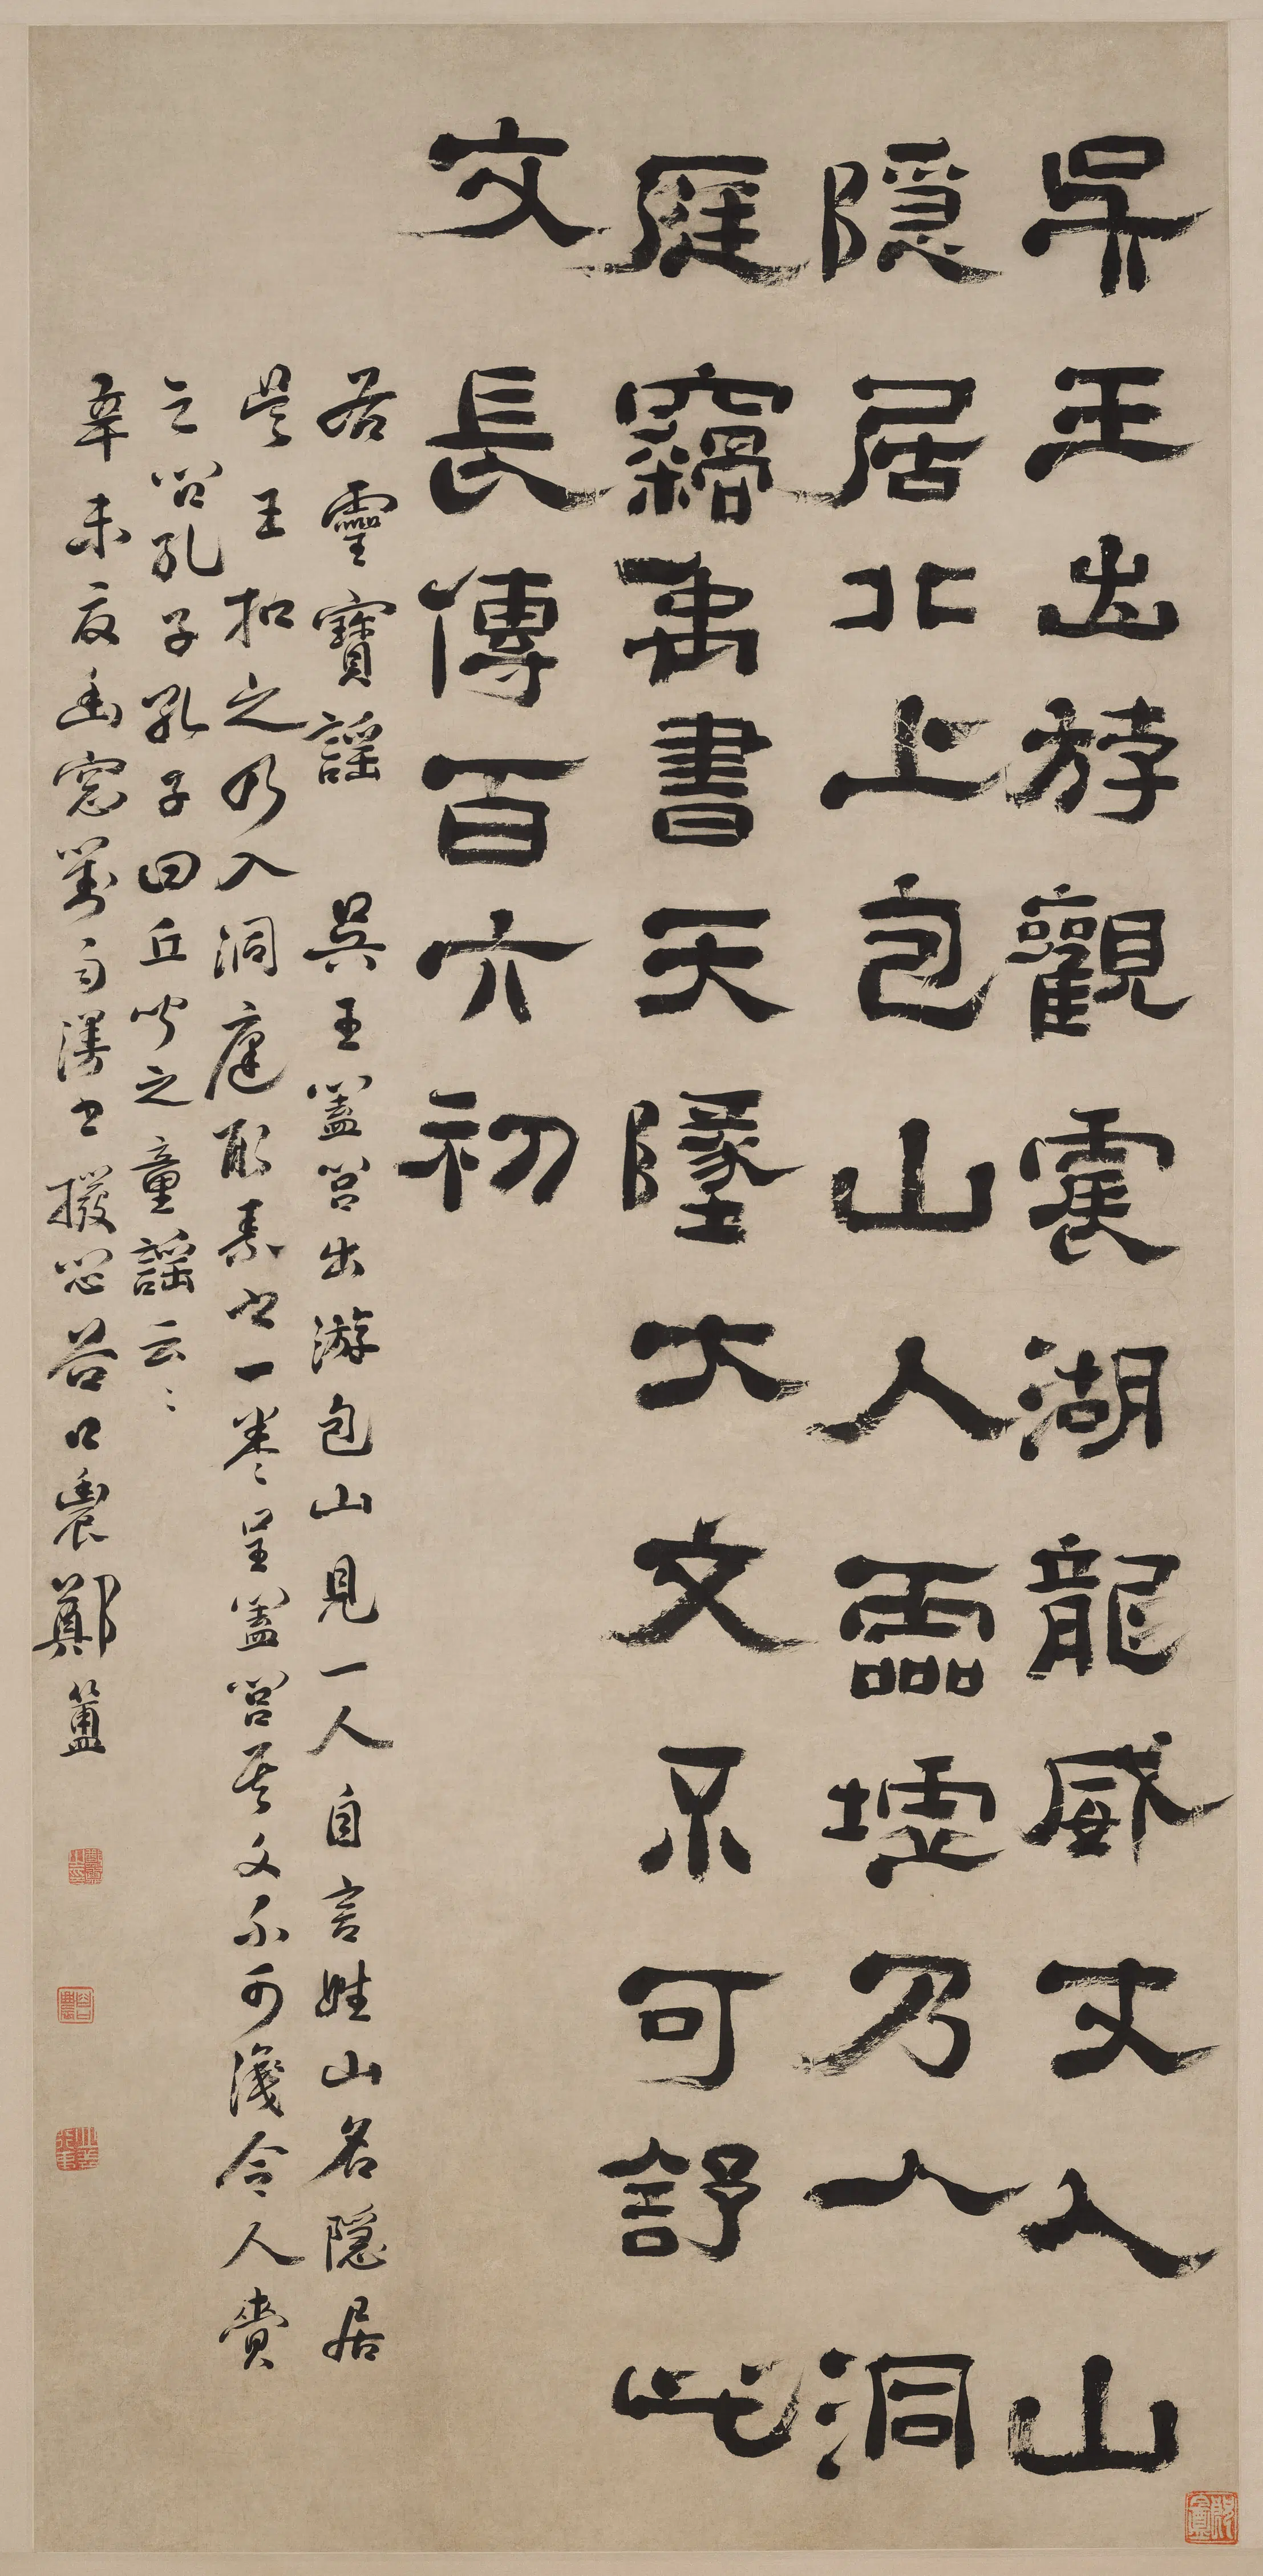 吳王出游觀震湖龍威丈人山
隱居北上包山人靈墟乃入洞
庭竊禹書天墬大文不可舒此
文長傳百六初
右靈寶謠　吳王蓋閭出游包山見一人自言姓山名隱居
吳王扣之乃入洞庭取素書一卷呈蓋閭其文不可識令人賫
之問孔子孔子曰丘聞之童謠云〻
辛未夏幽窓對雨漫書撥悶谷口農鄭簠